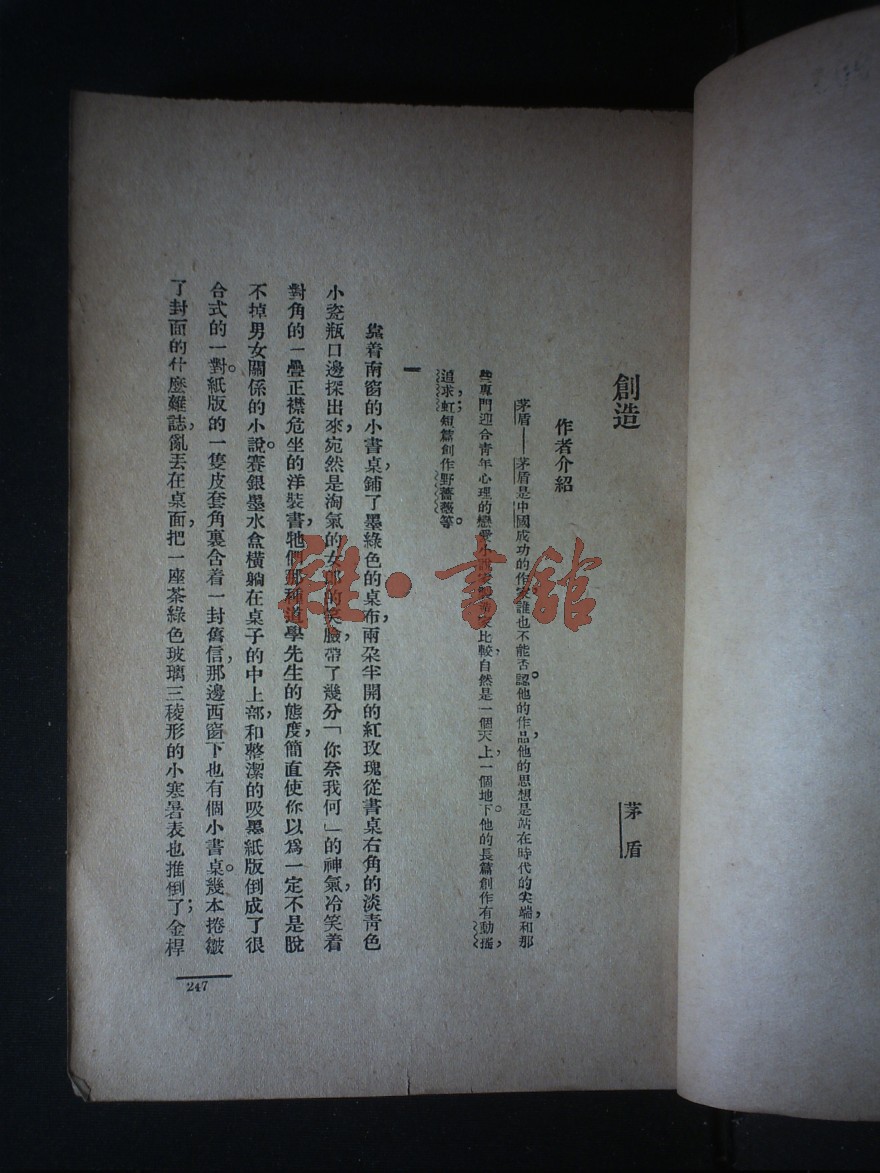 創造
茅盾
作者介紹
茅盾——茅盾是中國成功的作家誰也不能否認。他的作品，他的思想是站在時代的尖端，和那
些專門迎合青年心理的戀愛小說家比較，自然是一個天上，一個地下。他的長篇創作有動搖，
追求，虹；短篇創作野薔薇等。
一
靠着南窗的小書桌，鋪了墨綠色的桌布，兩朶半開的紅玫瑰從書桌右角的淡青色
小瓷瓶口邊探出來，宛然是淘氣的女郎的笑臉，帶了幾分「你奈我何」的神氣，冷笑着
對角的一疊正襟危坐的洋裝書，牠們那種道學先生的態度，簡直使你以爲一定不是脫
不掉男女關係的小說。賽銀墨水盒橫躺在桌子的中上部，和整潔的吸墨紙版倒成了很
合式的一對。紙版的一隻皮套角裏含着一封舊信，那邊西窗下也有個小書桌。幾本捲皺
了封面的什麼雜誌，亂丟在桌面，把一座茶綠色玻璃三稜形的小寒暑表也推倒了；金桿
247
雜·書館